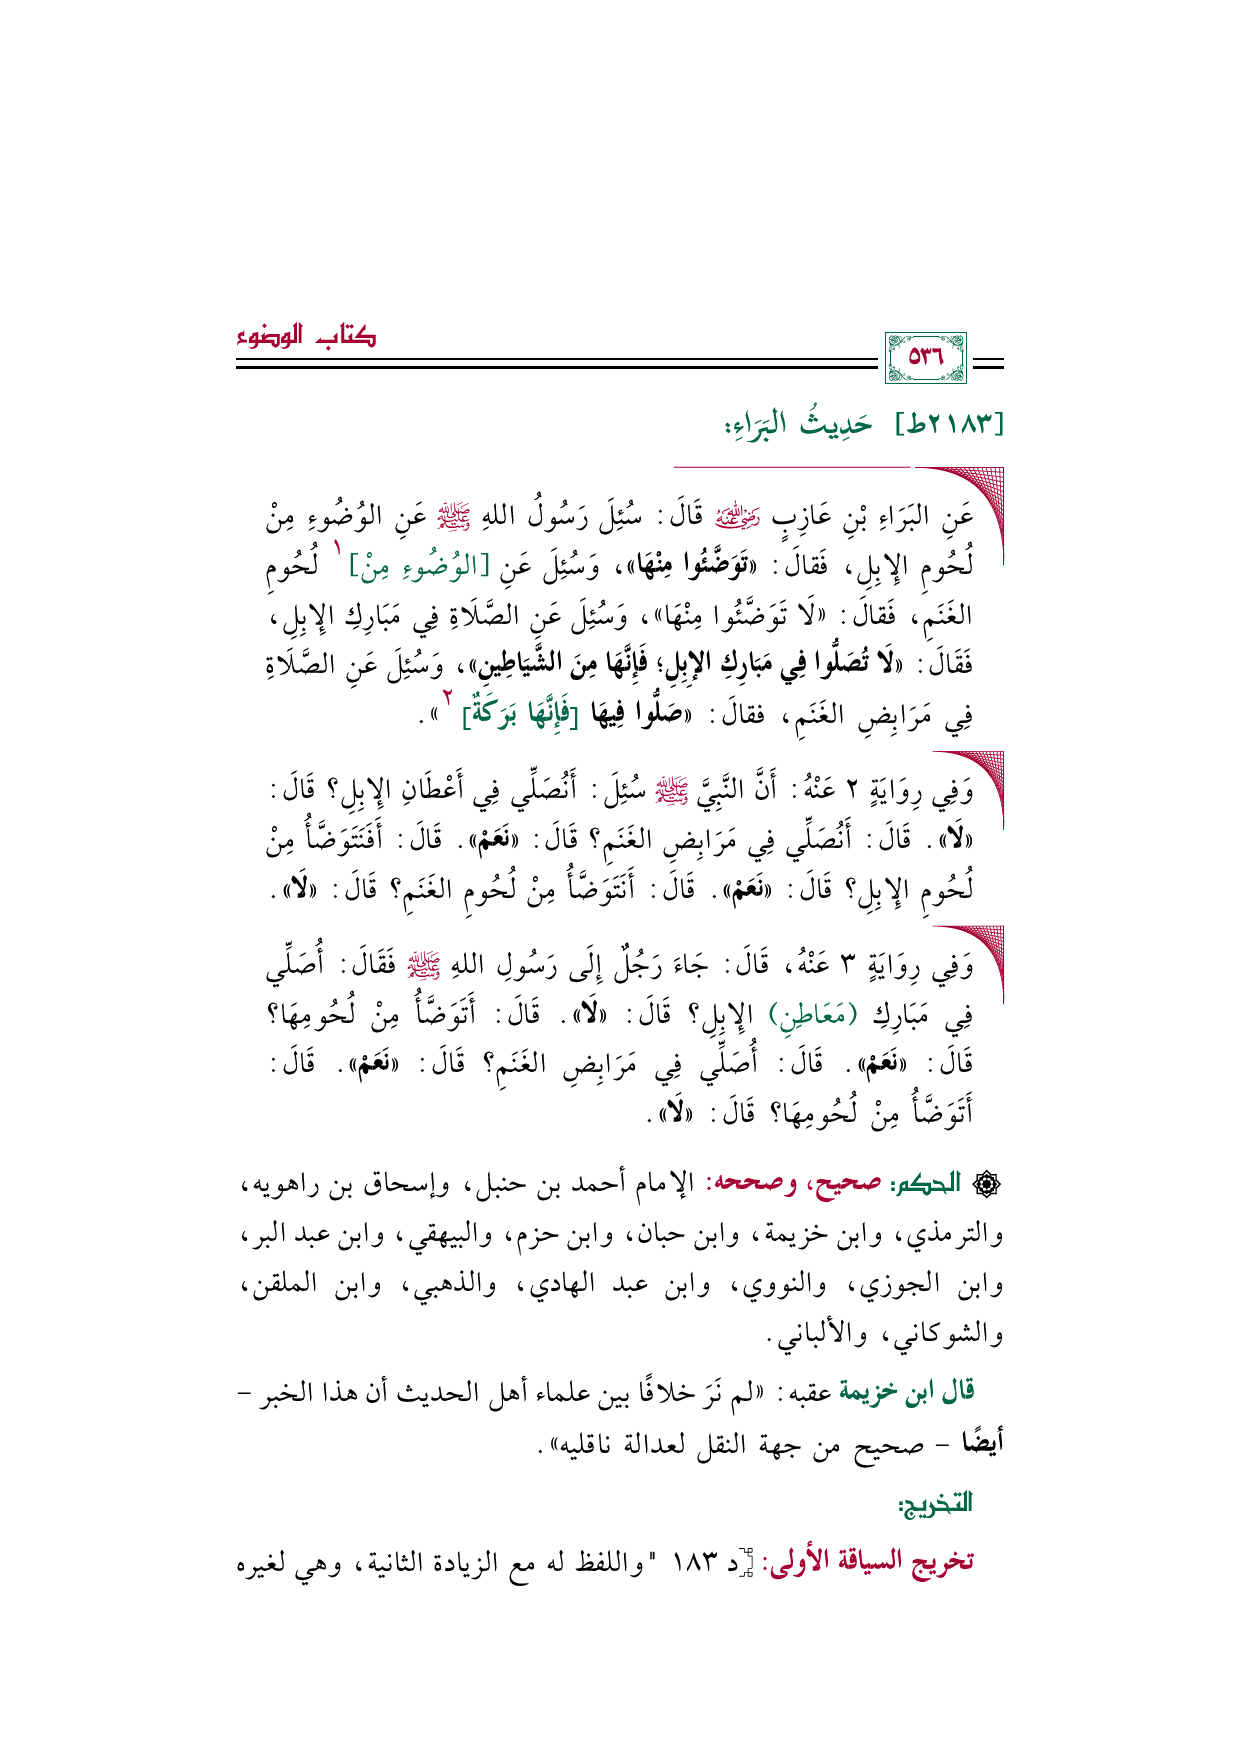 كتاب الوضوء
٥٣٦
[٢١٨٣ط] حَدِيثُ البَرَاءِ:
عَنِ البَرَاءِ بْنِ عَازِبٍ رضي الله عنه قَالَ: سُئِلَ رَسُولُ اللهِ ﷺ عَنِ الوُضُوءِ مِنْ
لُحُومِ الإِبِلِ، فَقالَ: «تَوَضَّئُوا مِنْهَا»، وَسُئِلَ عَنِ [الوُضُوءِ مِنْ]١ لُحُومِ
الغَنَمِ، فَقالَ: «لَا تَوَضَّئُوا مِنْهَا»، وَسُئِلَ عَنِ الصَّلَاةِ فِي مَبَارِكِ الإِبِلِ،
فَقَالَ: «لَا تُصَلُّوا فِي مَبَارِكِ الإِبِلِ؛ فَإِنَّهَا مِنَ الشَّيَاطِينِ»، وَسُئِلَ عَنِ الصَّلَاةِ
فِي مَرَابِضِ الغَنَمِ، فقالَ: «صَلُّوا فِيهَا [فَإِنَّهَا بَرَكَةٌ]٢».
وَفِي رِوَايَةٍ ٢ عَنْهُ: أَنَّ النَّبِيَّ ﷺ سُئِلَ: أَنُصَلِّي فِي أَعْطَانِ الإِبِلِ؟ قَالَ:
«لَا». قَالَ: أَنُصَلِّي فِي مَرَابِضِ الغَنَمِ؟ قَالَ: «نَعَمْ». قَالَ: أَفَنَتَوَضَّأُ مِنْ
لُحُومِ الإِبِلِ؟ قَالَ: «نَعَمْ». قَالَ: أَنَتَوَضَّأُ مِنْ لُحُومِ الغَنَمِ؟ قَالَ: «لَا».
وَفِي رِوَايَةٍ ٣ عَنْهُ، قَالَ: جَاءَ رَجُلٌ إِلَى رَسُولِ اللهِ ﷺ فَقَالَ: أُصَلِّي
فِي مَبَارِكِ (مَعَاطِنِ) الإِبِلِ؟ قَالَ: «لَا». قَالَ: أَتَوَضَّأُ مِنْ لُحُومِهَا؟
قَالَ: «نَعَمْ». قَالَ: أُصَلِّي فِي مَرَابِضِ الغَنَمِ؟ قَالَ: «نَعَمْ». قَالَ:
أَتَوَضَّأُ مِنْ لُحُومِهَا؟ قَالَ: «لَا».
الحكم: صحيح، وصححه: الإمام أحمد بن حنبل، وإسحاق بن راهويه،
والترمذي، وابن خزيمة، وابن حبان، وابن حزم، والبيهقي، وابن عبد البر،
وابن الجوزي، والنووي، وابن عبد الهادي، والذهبي، وابن الملقن،
والشوكاني، والألباني.
قال ابن خزيمة عقبه: «لم نَرَ خلافًا بين علماء أهل الحديث أن هذا الخبر –
أيضًا – صحيح من جهة النقل لعدالة ناقليه».
التخريج:
تخريج السياقة الأولى: [د ١٨٣ "واللفظ له مع الزيادة الثانية، وهي لغيره